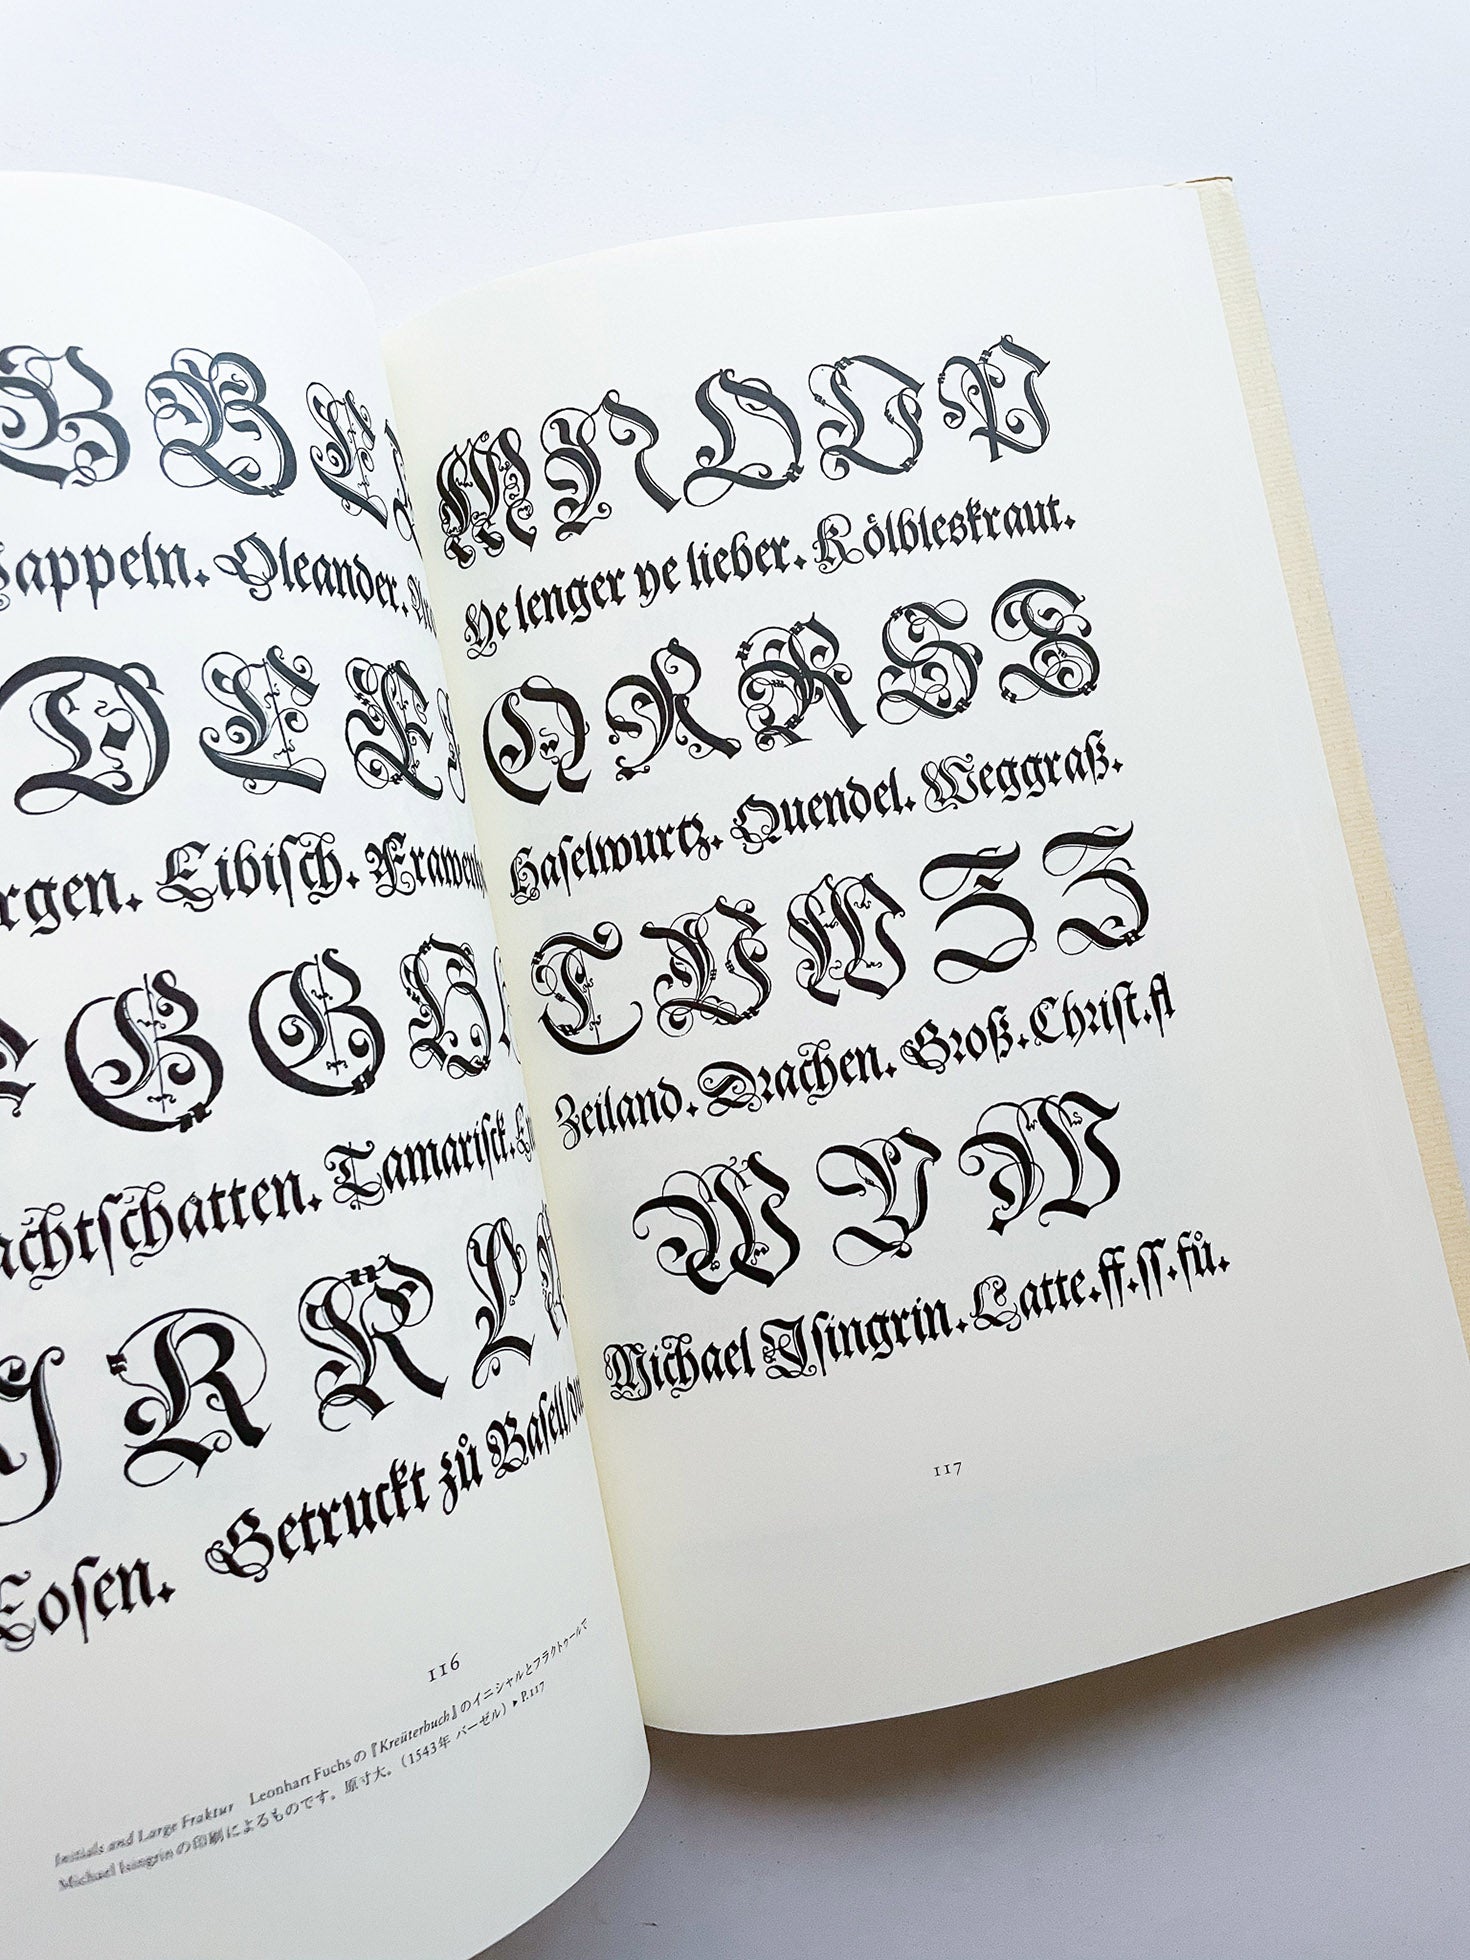 B B E
Oleander.
D E F
Eibisch.
G G H
Tamarisck.
J K K L
Getruckt zů Basell/
116
Initials and Large Fraktur Leonhart Fuchsの『Kreüterbuch』のイニシャルとフラクトゥールで
Michael Isingrinの印刷によるものです。原寸大。(1543年 バーゼル) ▸ P.117
M N O O P
Ye lenger ye lieber. Kölbleskraut.
Q R R S S
Haſelwurtz. Quendel. Weggraß.
T V W Z Z
Zeiland. Drachen. Groß. Chriſt. fl
W Y W
Michael Jſingrin. Latte. ff. ſſ. fů.
117